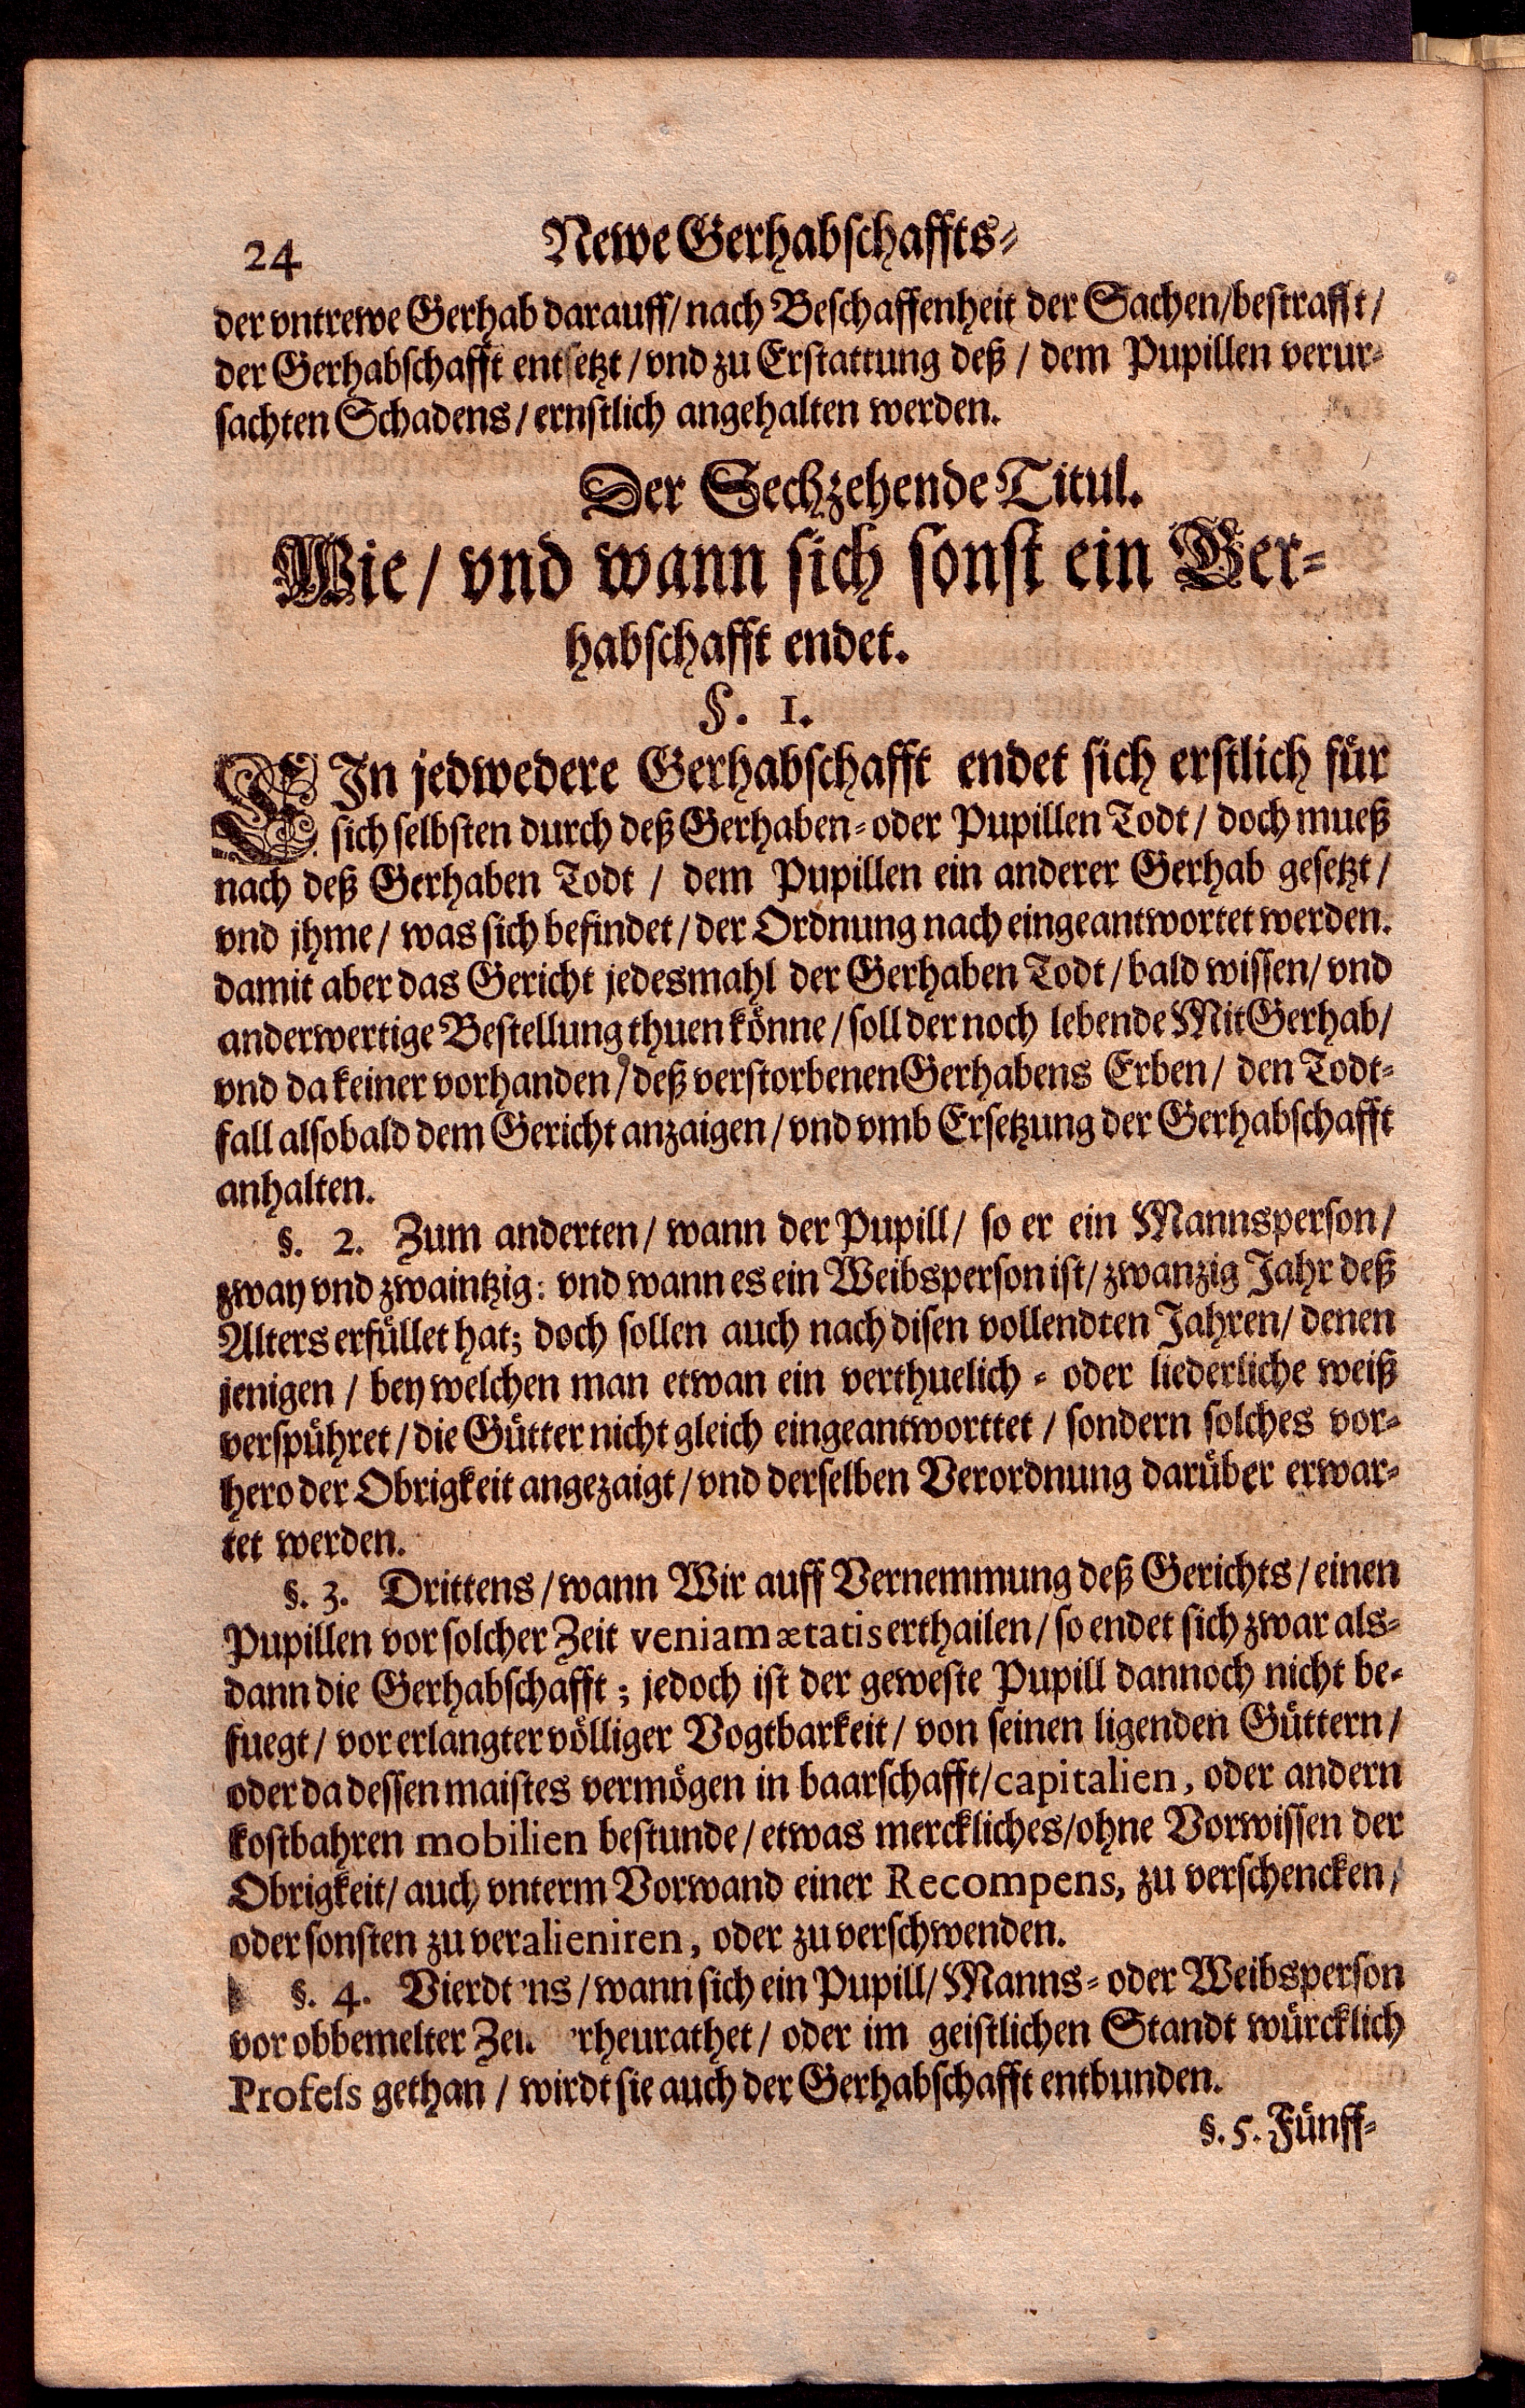 24 Newe Gerhabschaffts-
der vntrewe Gerhab darauff/ nach Beschaffenheit der Sachen/bestrafft/
der Gerhabschafft entsetzt / vnd zu Erstattung deß / dem Pupillen verur-
sachten Schadens / ernstlich angehalten werden.
Der Sechzehende Titul.
Wie / vnd wann sich sonst ein Ger-
habschafft endet.
§. 1.
EIn jedwedere Gerhabschafft endet sich erstlich für
sich selbsten durch deß Gerhaben- oder Pupillen Todt / doch mueß
nach deß Gerhaben Todt / dem Pupillen ein anderer Gerhab gesetzt /
vnd jhme / was sich befindet / der Ordnung nach eingeantwortet werden.
damit aber das Gericht jedesmahl der Gerhaben Todt / bald wissen/ vnd
anderwertige Bestellung thuen könne / soll der noch lebende MitGerhab/
vnd da keiner vorhanden / deß verstorbenen Gerhabens Erben / den Todt-
fall alsobald dem Gericht anzaigen / vnd vmb Ersetzung der Gerhabschafft
anhalten.
§. 2. Zum anderten / wann der Pupill / so er ein Mannsperson /
zway vnd zwaintzig: vnd wann es ein Weibsperson ist / zwanzig Jahr deß
Alters erfüllet hat; doch sollen auch nach disen vollendten Jahren / denen
jenigen / bey welchen man etwan ein verthuelich - oder liederliche weiß
verspühret / die Gütter nicht gleich eingeantworttet / sondern solches vor-
hero der Obrigkeit angezaigt / vnd derselben Verordnung darüber erwar-
tet werden.
§. 3. Drittens / wann Wir auff Vernemmung deß Gerichts / einen
Pupillen vor solcher Zeit veniam ætatis erthailen / so endet sich zwar als-
dann die Gerhabschafft ; jedoch ist der geweste Pupill dannoch nicht be-
fuegt / vor erlangter völliger Vogtbarkeit / von seinen ligenden Güttern /
oder da dessen maistes vermögen in baarschafft / capitalien, oder andern
kostbahren mobilien bestunde / etwas merckliches / ohne Vorwissen der
Obrigkeit / auch vnterm Vorwand einer Recompens, zu verschencken /
oder sonsten zu veralieniren, oder zu verschwenden.
§. 4. Vierdt ns / wann sich ein Pupill / Manns- oder Weibsperson
vor obbemelter rheurathet / oder im geistlichen Standt würcklich
Profess gethan / wirdt sie auch der Gerhabschafft entbunden.
§. 5. Fünff-